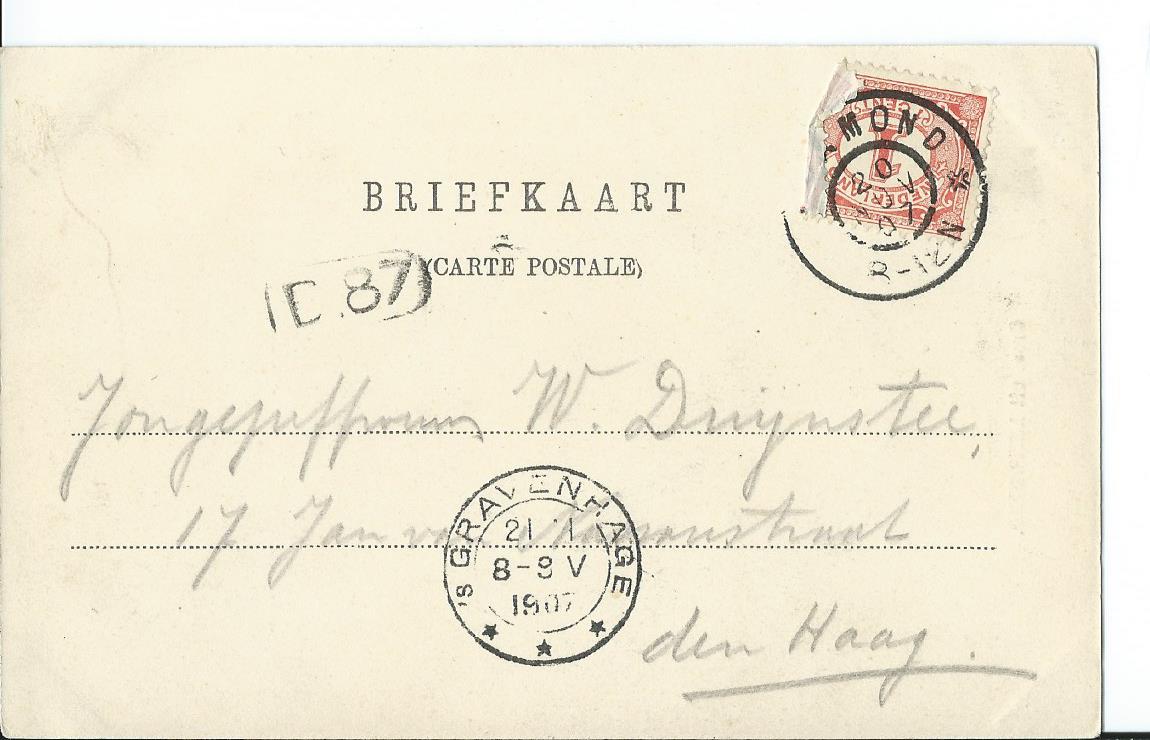 BRIEFKAART
(CARTE POSTALE)
MOND *
8-12 N
1 CENT
NEDERLAND
(C.87)
Jongejuffrouw W. Duijnstee,
17 Jan van
's GRAVENHAGE
21 . 1
8-9 V
1907
den Haag.